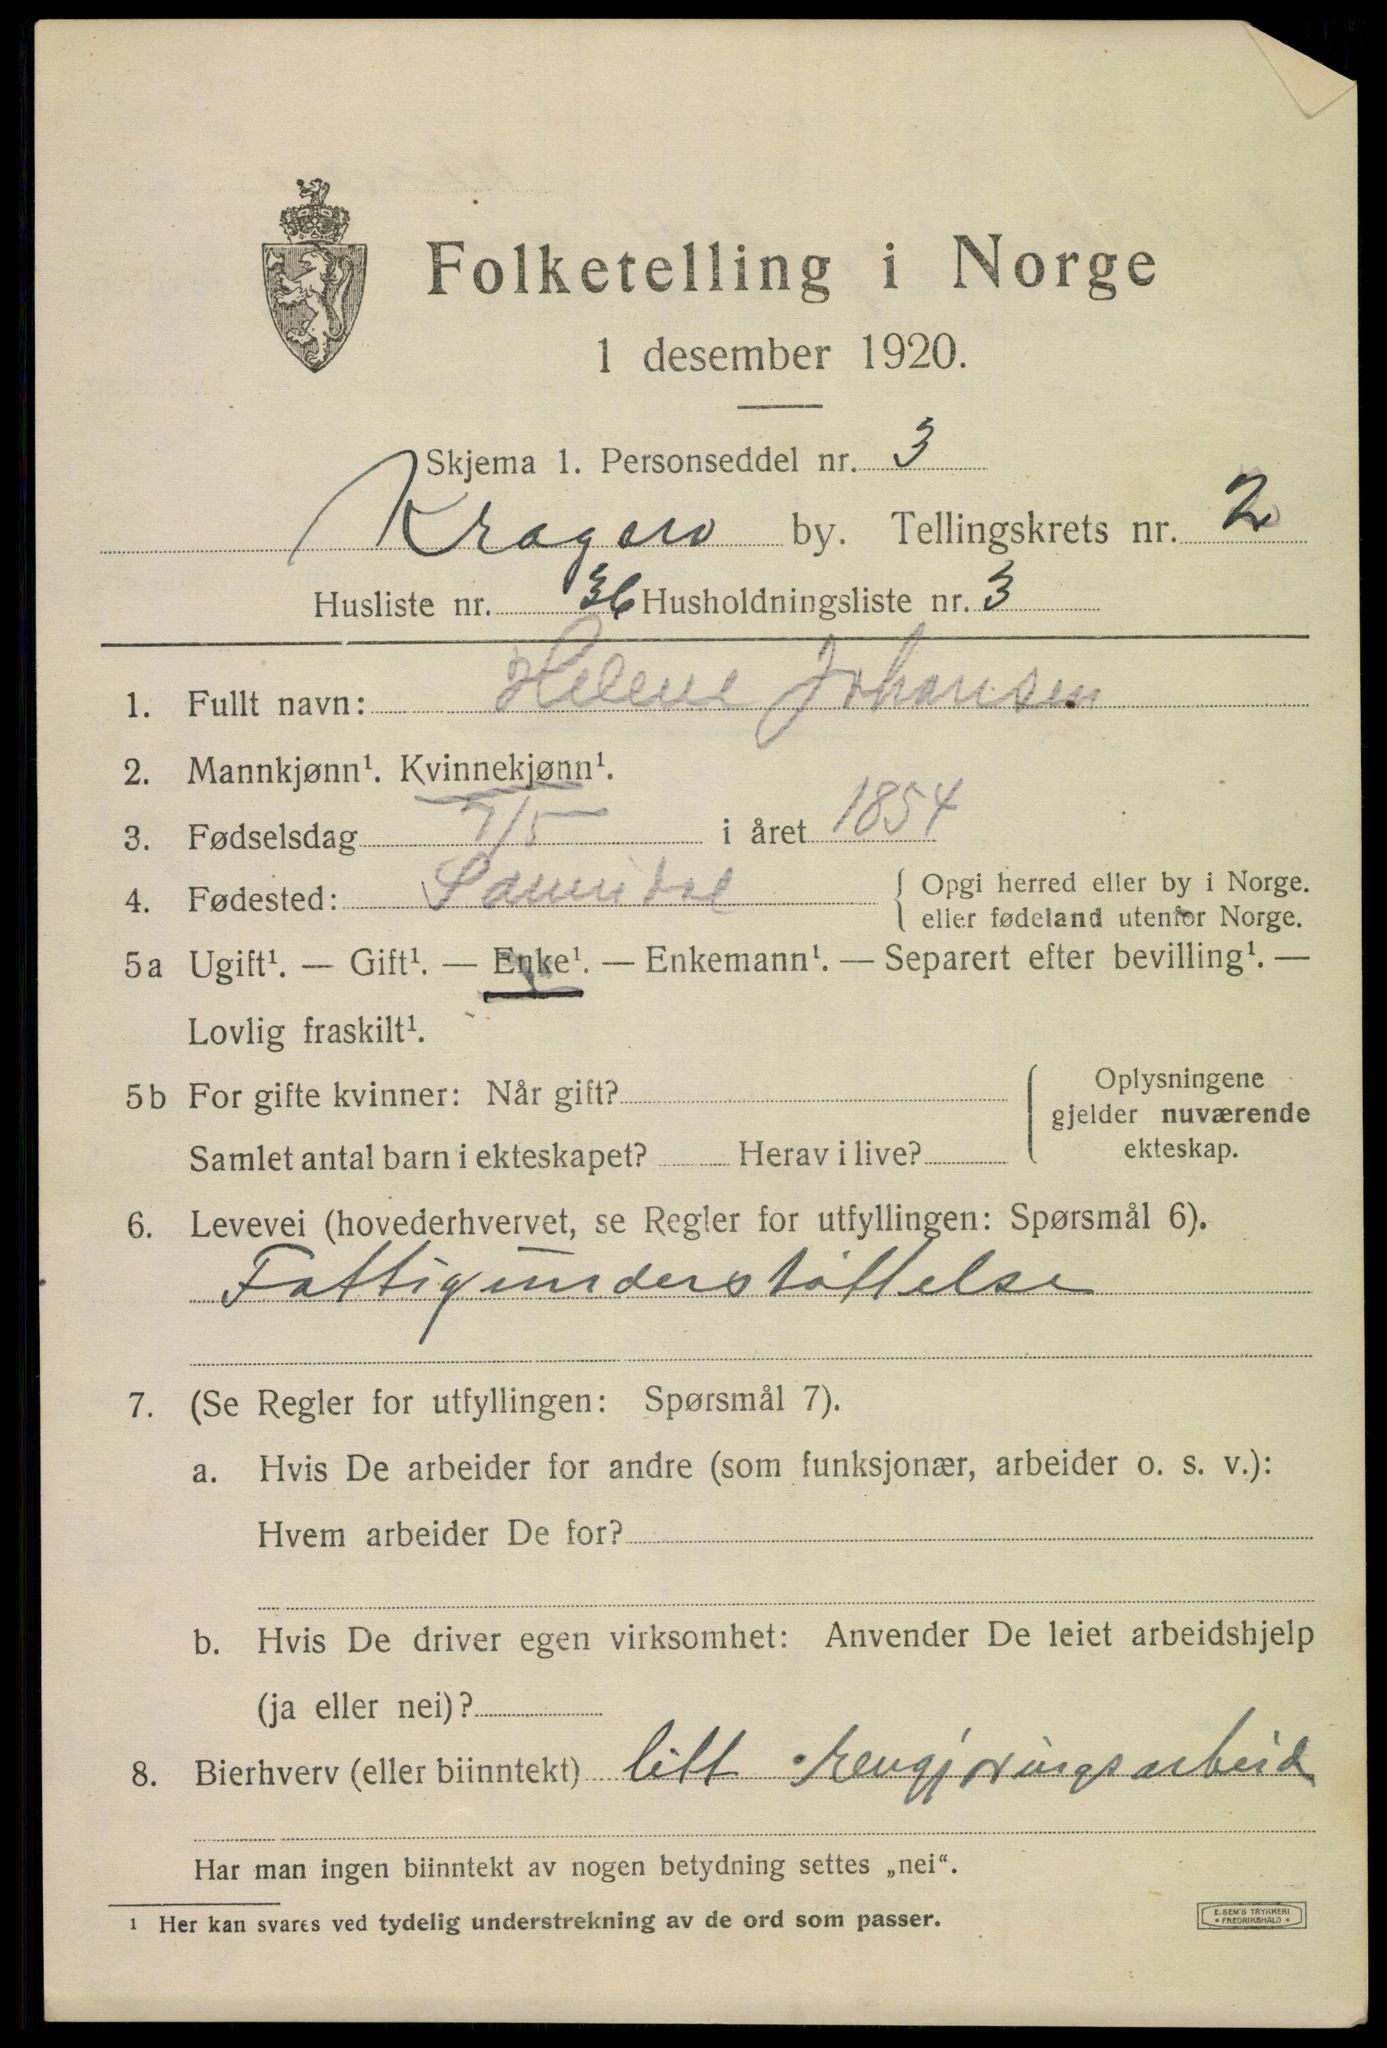 Folketelling i Norge
1 desember 1920.
Skjema 1. Personseddel nr. 3
Kragerø by. Tellingskrets nr. 2
Husliste nr. 36 Husholdningsliste nr. 3
1. Fullt navn: Helene Johansen
2. Mannkjønn¹. Kvinnekjønn¹.
3. Fødselsdag 7/5 i året 1854
4. Fødested: Sannidal { Opgi herred eller by i Norge.
eller fødeland utenfor Norge.
5a Ugift¹. — Gift¹. — Enke¹. — Enkemann¹. — Separert efter bevilling¹. —
Lovlig fraskilt¹.
5b For gifte kvinner: Når gift? { Oplysningene
gjelder nuværende
Samlet antal barn i ekteskapet? Herav i live? ekteskap.
6. Levevei (hovederhvervet, se Regler for utfyllingen: Spørsmål 6).
Fattigunderstøttelse
7. (Se Regler for utfyllingen: Spørsmål 7).
a. Hvis De arbeider for andre (som funksjonær, arbeider o. s. v.):
Hvem arbeider De for?
b. Hvis De driver egen virksomhet: Anvender De leiet arbeidshjelp
(ja eller nei)?
8. Bierhverv (eller biinntekt) litt rengjøringsarbeid
Har man ingen biinntekt av nogen betydning settes „nei“.
¹ Her kan svares ved tydelig understrekning av de ord som passer.
E. SEM'S TRYKKERI
* FREDRIKSHALD *